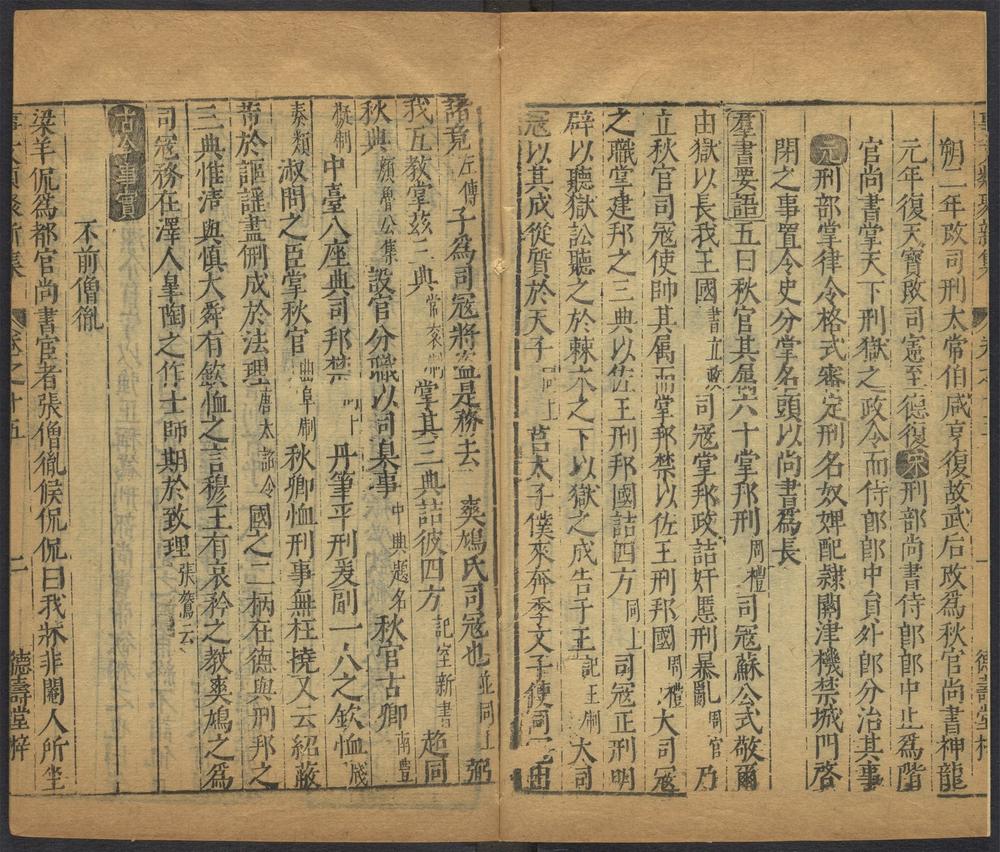 朔二年改司刑太常伯咸亨復故武后改爲秋官尚書神龍
元年復天寶改司憲至德復宋刑部尚書侍郎郎中止爲階
官尚書掌天下刑獄之政令而侍郎郎中員外郎分治其事
元刑部掌律令格式審定刑名奴婢配隷關津機禁城門啓
閉之事置令史分掌名頭以尚書爲長
羣書要語五曰秋官其屬六十掌邦刑周禮司寇蘇公式敬爾
由獄以長我王國書立政司寇掌邦政詰奸慝刑暴亂周官乃
立秋官司寇使帥其属而掌邦禁以佐王刑邦國周禮大司寇
之職掌建邦之三典以佐王刑邦國詰四方同上司寇正刑明
辟以聽獄訟聽之於棘木之下以獄之成告于王記王制大司
寇以其成從質於天子同上莒太子僕來奔季文子使司寇出
諸竟左傳子爲司寇將盜是務去 爽鳩氏司寇也並同上弼
我五教掌茲三典常袞制掌其三典詰彼四方記室新書趙同
秋典顔魯公集設官分職以司臬事中典題名秋官古卿南豊
擬制中臺八座典司邦禁同上丹筆平刑爰副一八之欽恤牋
奏類淑問之臣掌秋官曲阜制秋卿恤刑事無枉撓又云紹蔽
芾於謳謡盡侀成於法理唐太詔令國之二柄在德與刑邦之
三典惟清與慎大舜有欽恤之言穆王有哀矜之教爽鳩之爲
司寇務在澤人臯陶之作士師期於致理張鷟云
古今事實
不前僧胤
梁羊侃爲都官尚書宦者張僧胤候侃侃曰我牀非閹人所坐
德壽堂梓